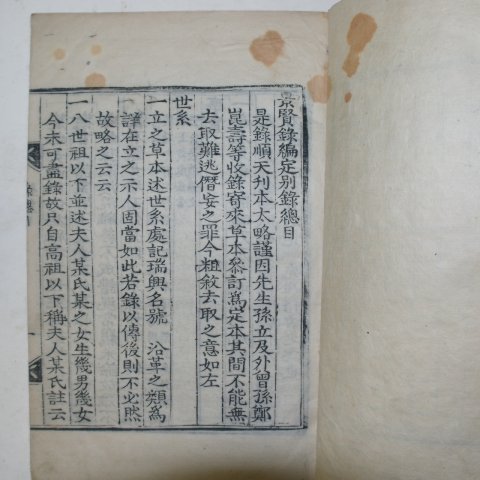 景賢錄編定別錄總目
是錄順天刋本太略謹因先生孫立及外曾孫鄭
崑壽等收錄寄來草本叅訂爲定本其間不能無
去取難逃僭妄之罪今粗敘去取之意如左
世系
一立之草本述世系處記瑞興名號 沿革之類爲
詳在立之示人固當如此若錄以傳後則不必然
故略之云云
一八世祖以下並述夫人某氏某之女生幾男幾女
今未可盡錄故只自高祖以下稱夫人某氏註云